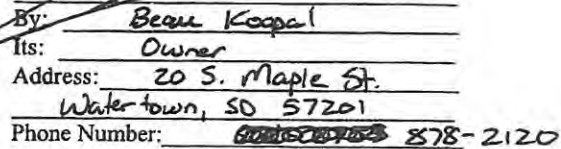 By: Beau Koopal
Its: Owner
Address: 20 S. Maple St.
Watertown, SD 57201
Phone Number: 878-2120